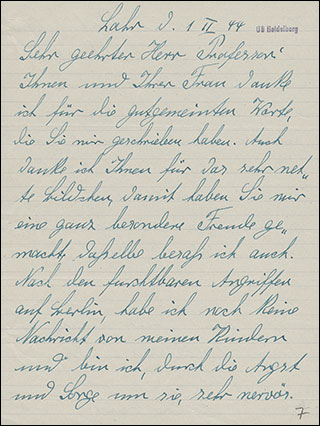 Lahr d. 1 II 44
UB Heidelberg
Sehr geehrter Herr Professor!
Ihnen und Ihrer Frau danke
ich für die gutgemeinten Worte,
die Sie mir geschrieben haben. Auch
danke ich Ihnen für das sehr net„
te Bildchen, damit haben Sie mir
eine ganz besondere Freude ge„
macht, daßelbe besaß ich auch.
Nach den furchtbaren Angriffen
auf Berlin, habe ich noch keine
Nachricht von meinen Kindern
und bin ich, durch die Angst
und Sorge um sie, sehr nervös.
7